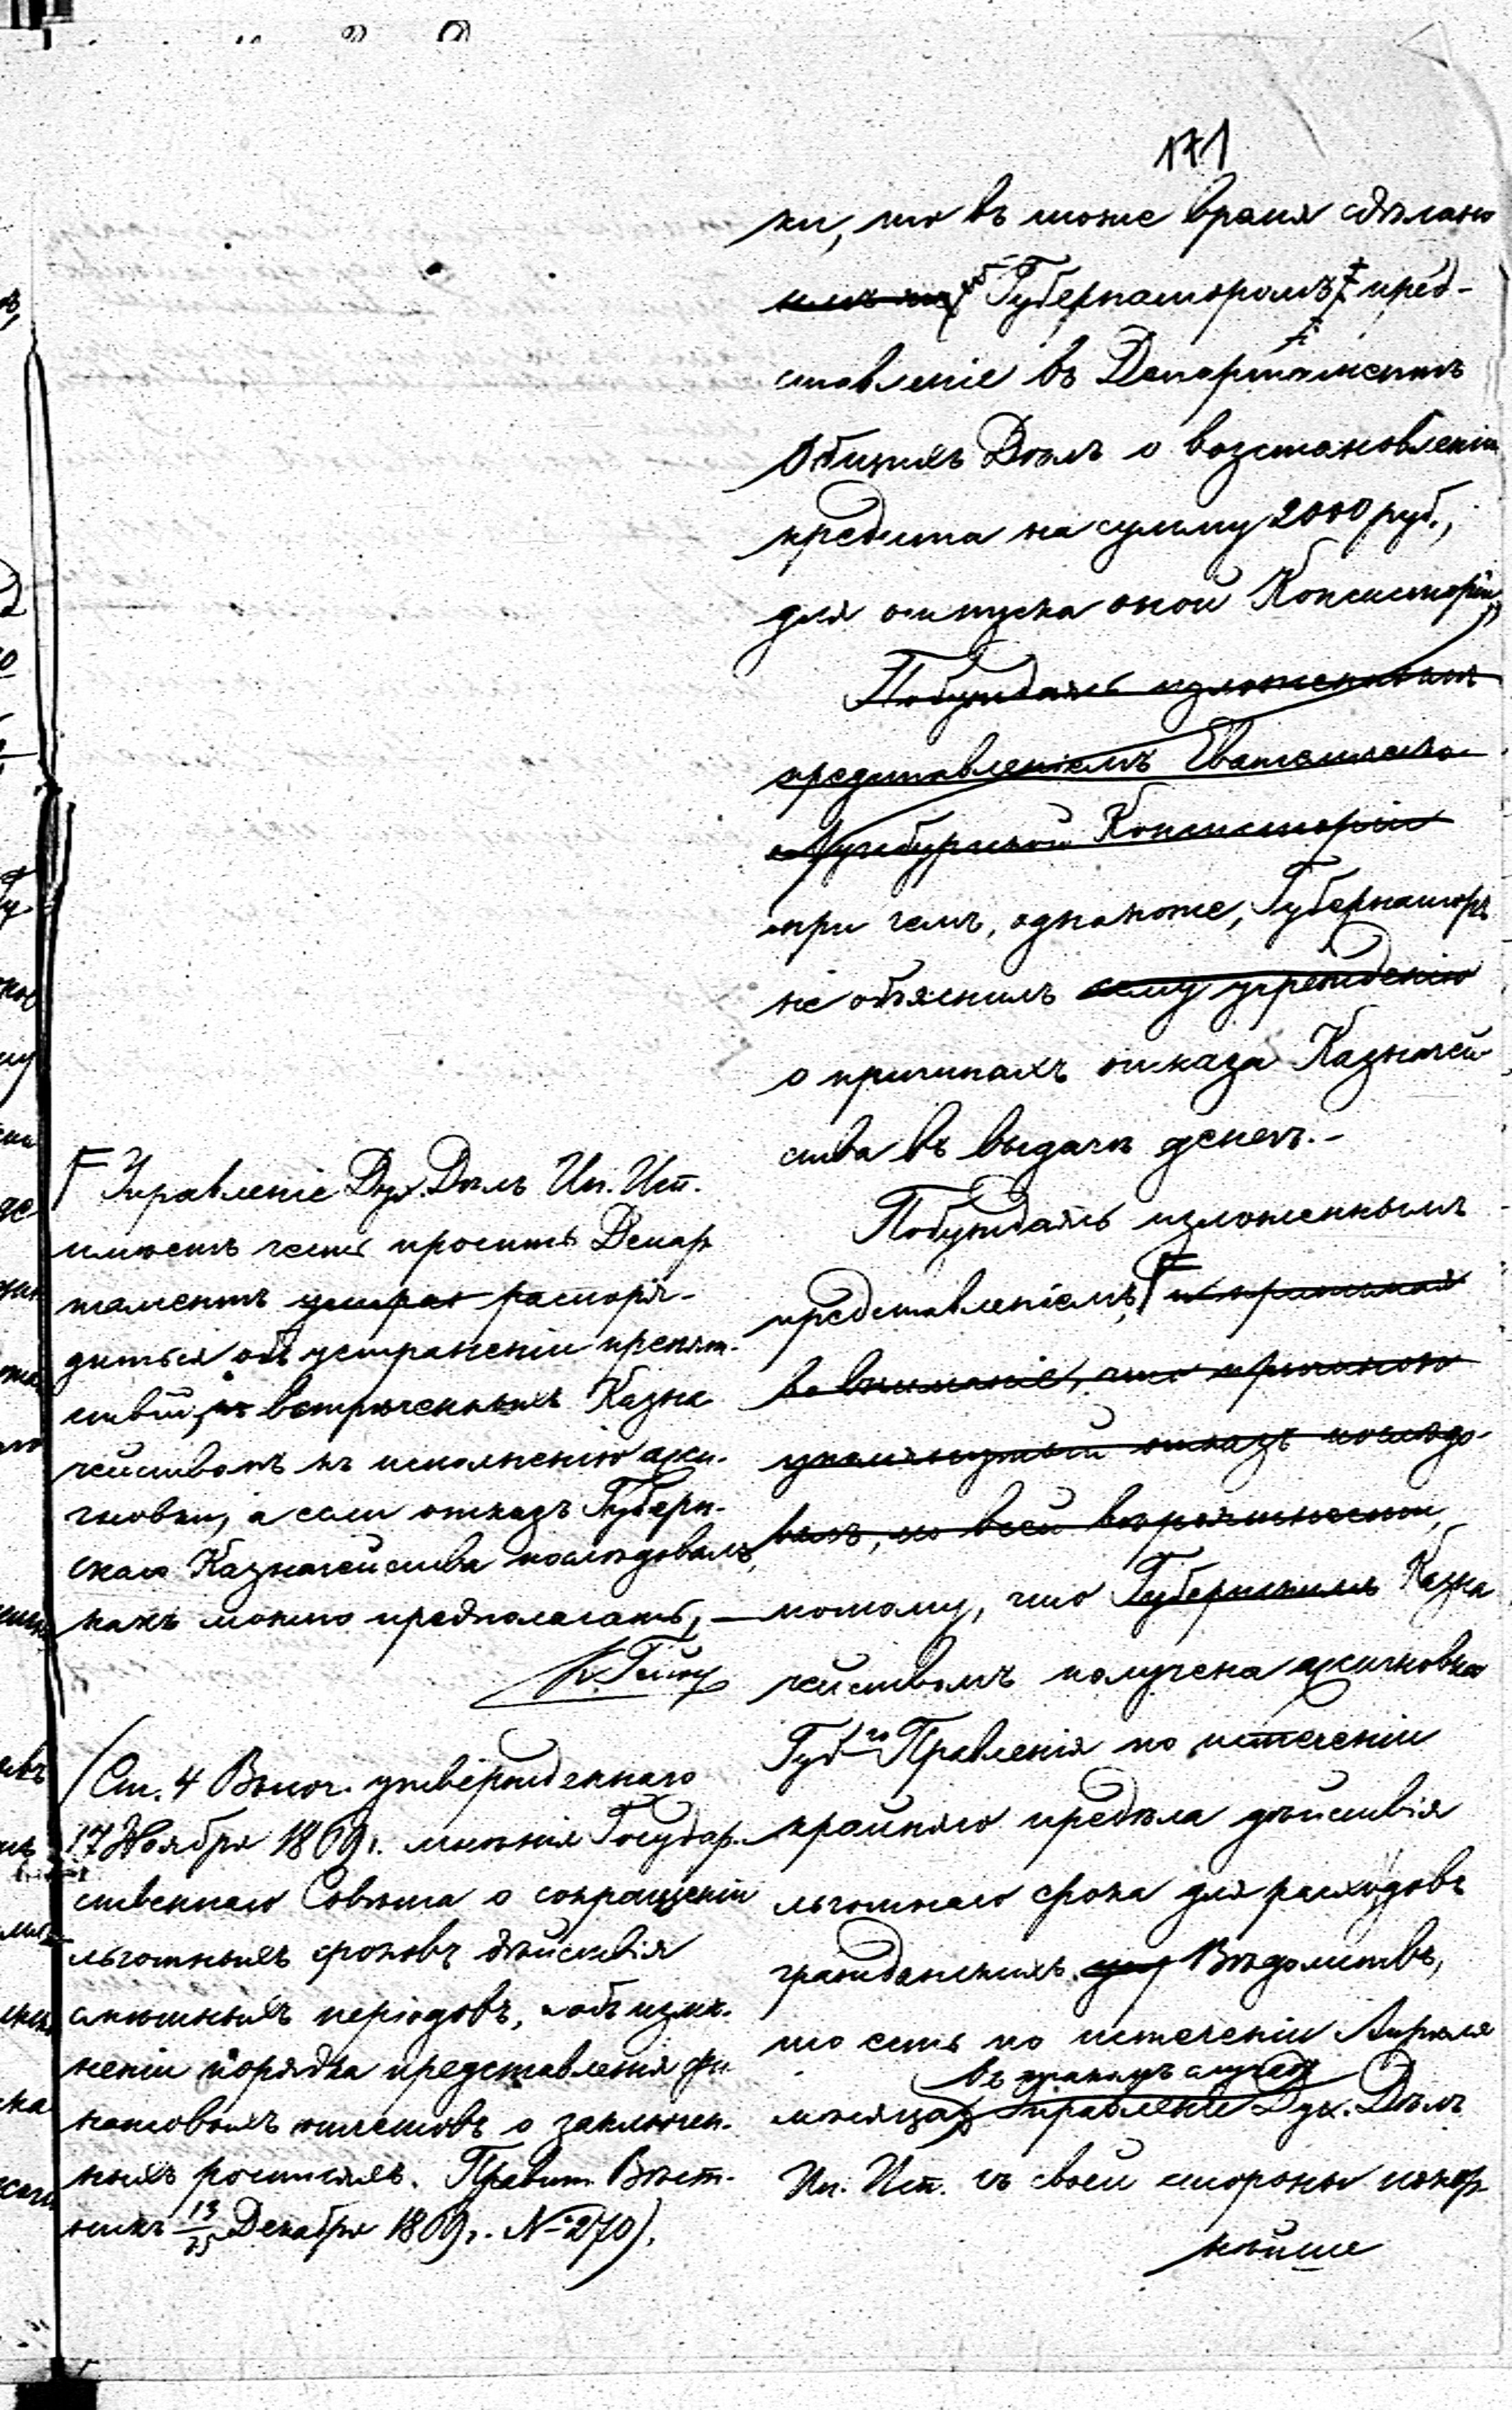 171
ки, то въ тоже время сдѣлано
Губернаторомъ пред-
ставленіе въ Департаментъ
Общихъ Дѣлъ о возстановленіи
кредита на сумму 2000 руб.,
для отпуска оной Консисторіи,
Побуждаясь изложеннымъ
представленіемъ Евангелическо
Аугсбургской Консисторіи
при чемъ, однакоже, Губернаторъ
не объяснилъ сему учрежденію
о причинахъ отказа Казначей
ства въ выдачѣ денегъ.-
Побуждаясь изложеннымъ
представленіемъ, и принимая
во вниманіе, что причиною
упомянутый отказъ послѣдо-
валъ, по всей вѣроятности,
потому, что Губернскимъ Казна
чействомъ получена ассигновка
Губ-го Правленія по истеченіи
крайняго предѣла дѣйствія
льготнаго срока для расходовъ
гражданскихъ Вѣдомствъ,
то есть по истеченіи Апрѣля
въ такомъ случаѣ
мѣсяца, Управленіе Дух. Дѣлъ
Ин. Исп. съ своей стороны покор
нѣйше
Управленіе Дух. Дѣлъ Ин. Исп.
имѣетъ честь просить Депар
таментъ распоря-
диться объ устраненіи препят-
ствій, встрѣченныхъ Казна
чействомъ къ исполненію асси-
гновки, а если отказъ Губерн-
скаго Казначейства послѣдовалъ,
какъ можно предполагать, —
(Ст. 4 Высоч. утвержденнаго
17 Ноября 1869 г. мнѣнія Государ-
ственнаго Совѣта о сокращеніи
льготныхъ сроковъ дѣйствія
смѣтныхъ періодовъ, и объ измѣ-
неніи порядка представленія фи-
нансовыхъ отчетовъ о заключен-
ныхъ росписяхъ. Правит. Вѣст-
никъ 13/25 Декабря 1869 г. № 270).